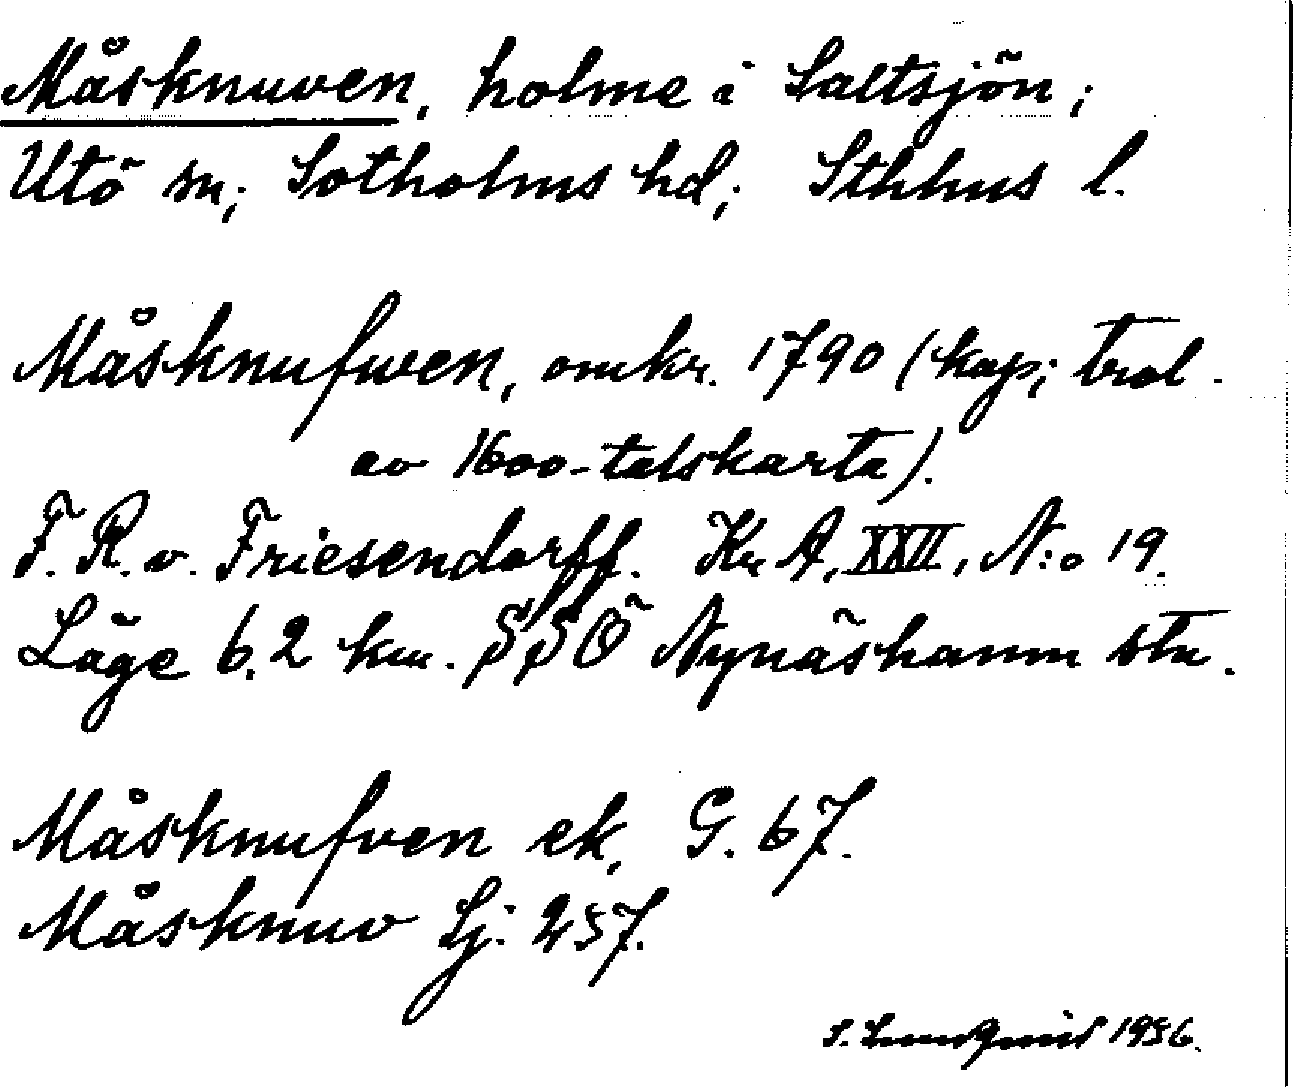 Måsknuven, holme i Saltsjön;
Utö sn; Sotholms hd; Sthlms l.
Måsknufwen, omkr. 1790 (kap; trol.
av 1600-talskarta).
F. R. v. Friesendorff. Kr A, XXVI, N:o 19.
Läge 6,2 km. SSÖ Nynäshamn stn.
Måsknufven ek. G. 67.
Måsknuv Sj. 257.
S. Lundquist 1936.